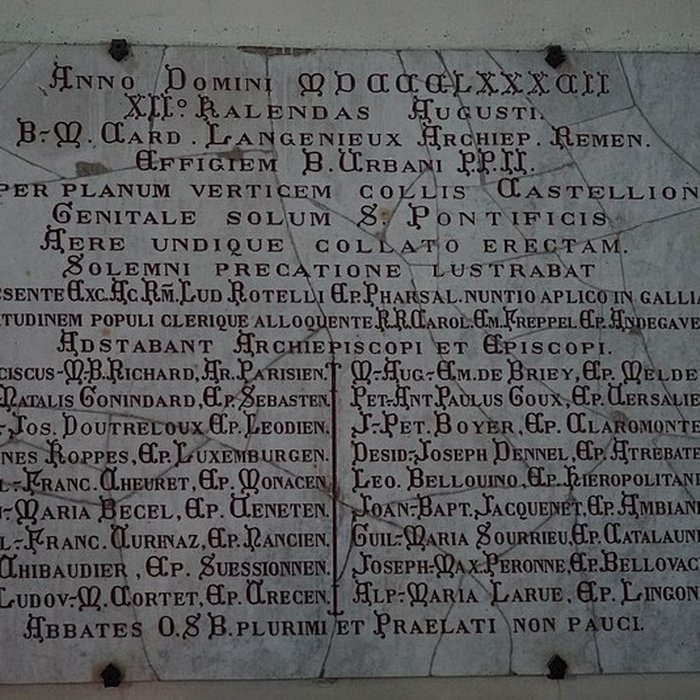 Anno Domini MDCCCLXXXVII
XII° Kalendas Augusti.
B.-M. Card. Langenieux Archiep. Remen.
Effigiem B. Urbani P.P.II.
per planum verticem collis Castellion
Genitale solum S. Pontificis
Aere undique collato erectam.
Solemni precatione lustrabat
sente Exc. Ac Rm. Lud Rotelli Ep. Pharsal. nuntio aplico in Gallia
tudinem populi clerique alloquente R.R. Carol. Em. Freppel Ep. Andegave
Adstabant Archiepiscopi et Episcopi.
ciscus-M.B. Richard, Ar. Parisien. M.-Aug.-Em. de Briey, Ep. Melde
Natalis Gonindard, Ep. Sebasten. Pet.-Ant Paulus Goux, Ep. Versalie
-Jos. Doutreloux Ep. Leodien. J.-Pet. Boyer, Ep. Claromonte
nes Koppes, Ep. Luxemburgen. Desid.-Joseph Dennel, Ep. Atrebate
l.-Franc. Theuret, Ep. Monacen. Leo. Bellouino, Ep. Hieropolitan
n-Maria Becel, Ep. Veneten. Joan-Bapt. Jacquenet, Ep. Ambian
l.-Franc. Turinaz, Ep. Nancien. Guil.-Maria Sourrieu, Ep. Catalaun
Thibaudier, Ep. Suessionnen. Joseph-Max. Peronne, Ep. Bellovac
Ludov.-M. Cortet, Ep. Trecen. Alp.-Maria Larue, Ep. Lingon
Abbates O.S B. plurimi et Praelati non pauci.